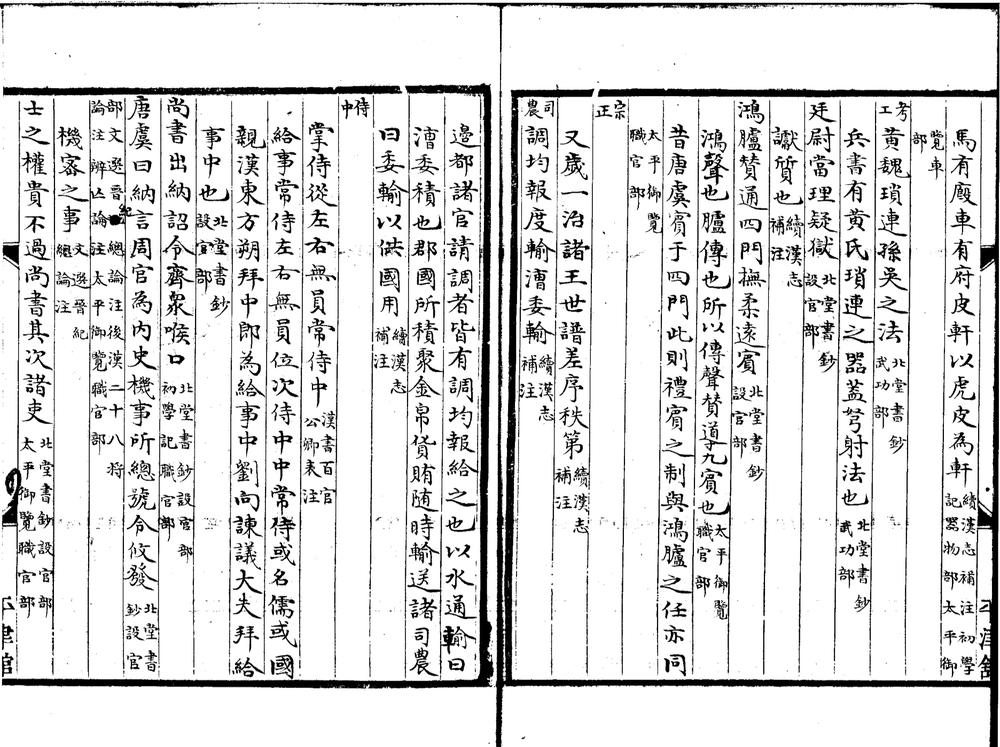 馬有廄車有府皮軒以虎皮為軒續漢志補注初學記器物部太平御
覽車部
考工黃魏瑣連孫吳之法北堂書鈔武功部
兵書有黃氏瑣連之器蓋弩射法也北堂書鈔武功部
廷尉當理疑獄北堂書鈔設官部
讞質也續漢志補注
鴻臚贊通四門撫柔遠賓北堂書鈔設官部
鴻聲也臚傳也所以傳聲贊導九賓也太平御覽職官部
昔唐虞賓于四門此則禮賓之制與鴻臚之任亦同
太平御覽職官部
宗正
又歲一治諸王世譜差序秩第續漢志補注
司農調均報度輸漕委輸續漢志補注
邊郡諸官請調者皆有調均報給之也以水通輸曰
漕委積也郡國所積聚金帛貨賄隨時輸送諸司農
曰委輸以供國用續漢志補注
侍中
掌侍從左右無員常侍中漢書百官公卿表注
給事常侍左右無員位次侍中中常侍或名儒或國
親漢東方朔拜中郎為給事中劉向諫議大夫拜給
事中也北堂書鈔設官部
尚書出納詔令齊衆喉口北堂書鈔設官部初學記職官部
唐虞曰納言周官為內史機事所總號令攸發北堂書鈔設官
部文選晉紀總論注後漢二十八將論注辨亡論注太平御覽職官部
機密之事文選晉紀總論注
士之權貴不過尚書其次諸吏北堂書鈔設官部太平御覽職官部
平津館